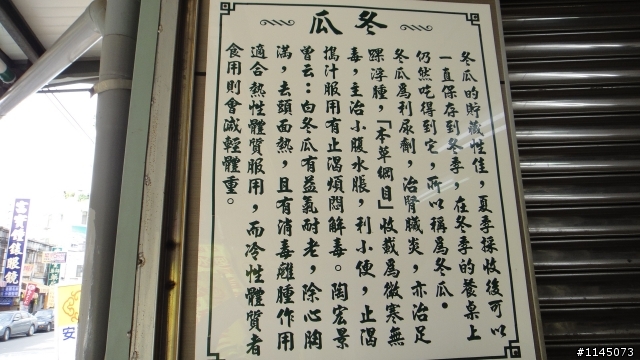 冬瓜
冬瓜的貯藏性佳，夏季採收後可以
一直保存到冬季，在冬季的餐桌上
仍然吃得到它，所以稱為冬瓜。
冬瓜為利尿劑，治腎臟炎，亦治足
踝浮腫，「本草綱目」收載為微寒無
毒，主治小腹水脹，利小便，止渴
搗汁服用有止渴煩悶解毒。陶宏景
曾云：白冬瓜有益氣耐老，除心胸
滿，去頭面熱，且有消毒癰腫作用
適合熱性體質服用，而冷性體質者
食用則會減輕體重。
安
#1145073